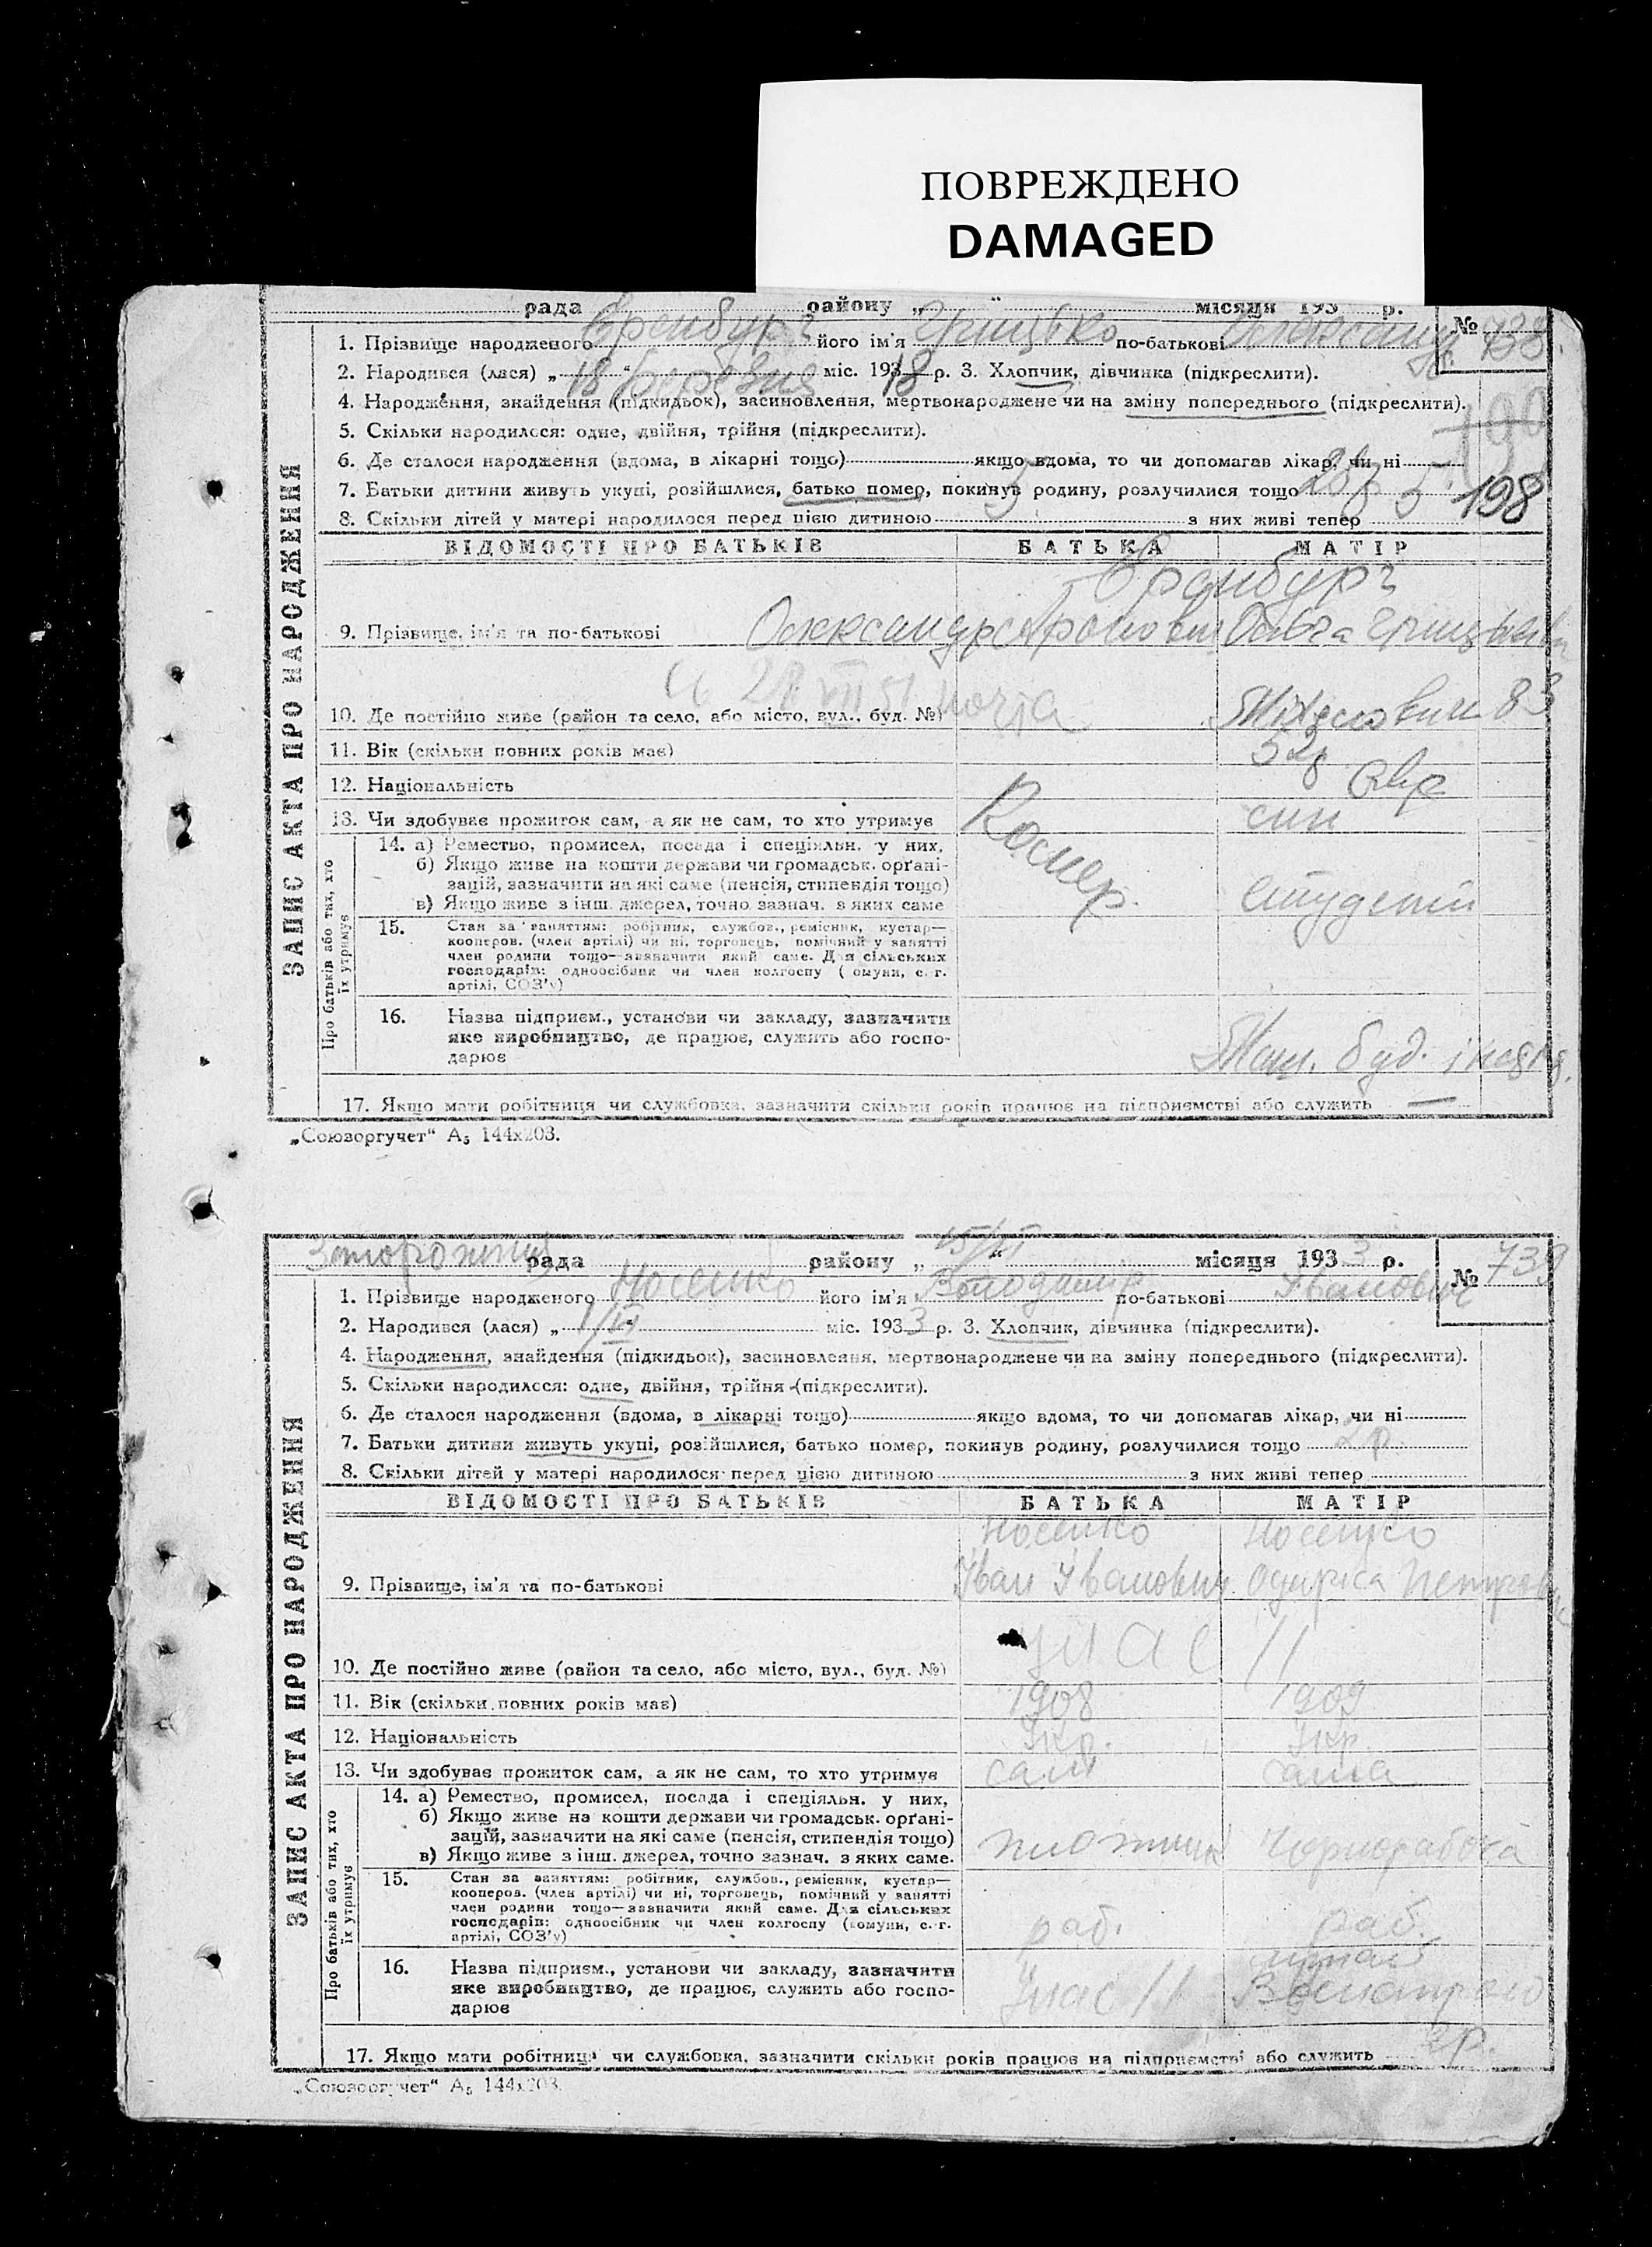 ПОВРЕЖДЕНО
DAMAGED
рада району „ “ місяця 193 р.
№ 738
1. Прізвище народженого Еренбург його ім'я Грицько по-батькові
2. Народився (лася) „ 18 “ березня міс. 1918 р. 3. Хлопчик, дівчинка (підкреслити).
4. Народження, знайдення (підкидьок), засиновлення, мертвонароджене чи на зміну попереднього (підкреслити).
190
5. Скільки народилося: одне, двійня, трійня (підкреслити).
6. Де сталося народження (вдома, в лікарні тощо) якщо вдома, то чи допомагав лікар, чи ні
7. Батьки дитини живуть укупі, розійшлися, батько помер, покинув родину, розлучилися тощо
198
8. Скільки дітей у матері народилося перед цією дитиною з них живі тепер
ЗАПИС АКТА ПРО НАРОДЖЕННЯ
ВІДОМОСТІ ПРО БАТЬКІВ БАТЬКА МАТІР
Еренбург
9. Прізвище, ім'я та по-батькові Олександр Аронович Ольга
10. Де постійно живе (район та село, або місто, вул., буд. №) 83
11. Вік (скільки повних років має) 52
12. Національність євр
13. Чи здобуває прожиток сам, а як не сам, то хто утримує син
Про батьків або тих, хто їх утримує
14. а) Ремество, промисел, посада і спеціяльн. у них,
б) Якщо живе на кошти держави чи громадськ. орґані-
зацій, зазначити на які саме (пенсія, стипендія тощо)
в) Якщо живе з інш. джерел, точно зазнач. з яких саме студент
15. Стан за заняттям: робітник, службов., ремісник, кустар—
кооперов. (член артілі) чи ні, торговець, помічний у занятті
член родини тощо—зазначити який саме. Для сільських
господарів: одноосібник чи член колгоспу (комуни, с.-г.
артілі, СОЗ'у)
16. Назва підприєм., установи чи закладу, зазначити
яке виробництво, де працює, служить або госпо-
дарює
Маш. буд.
17. Якщо мати робітниця чи службовка, зазначити скільки років працює на підприємстві або служить —
„Союзоргучет“ А5 144х203.
рада району „ 15/VI “ місяця 1933 р.
№ 739
1. Прізвище народженого Носенко його ім'я Володимир по-батькові Іванович
2. Народився (лася) „ “ міс. 1933 р. 3. Хлопчик, дівчинка (підкреслити).
4. Народження, знайдення (підкидьок), засиновлення, мертвонароджене чи на зміну попереднього (підкреслити).
5. Скільки народилося: одне, двійня, трійня (підкреслити).
6. Де сталося народження (вдома, в лікарні тощо) якщо вдома, то чи допомагав лікар, чи ні
7. Батьки дитини живуть укупі, розійшлися, батько помер, покинув родину, розлучилися тощо 2р.
8. Скільки дітей у матері народилося перед цією дитиною з них живі тепер
ЗАПИС АКТА ПРО НАРОДЖЕННЯ
ВІДОМОСТІ ПРО БАТЬКІВ БАТЬКА МАТІР
Носенко Носенко
9. Прізвище, ім'я та по-батькові Іван Іванович
10. Де постійно живе (район та село, або місто, вул., буд. №) 11
11. Вік (скільки повних років має) 1908 1909
12. Національність Укр. Укр.
13. Чи здобуває прожиток сам, а як не сам, то хто утримує сам сама
Про батьків або тих, хто їх утримує
14. а) Ремество, промисел, посада і спеціяльн. у них,
б) Якщо живе на кошти держави чи громадськ. орґані-
зацій, зазначити на які саме (пенсія, стипендія тощо)
в) Якщо живе з інш. джерел, точно зазнач. з яких саме. плотник Чорнорабоча
15. Стан за заняттям: робітник, службов., ремісник, кустар—
кооперов. (член артілі) чи ні, торговець, помічний у занятті
член родини тощо—зазначити який саме. Для сільських
господарів: одноосібник чи член колгоспу (комуни, с.-г.
артілі, СОЗ'у)
раб. раб.
16. Назва підприєм., установи чи закладу, зазначити
яке виробництво, де працює, служить або госпо-
дарює
11
17. Якщо мати робітниця чи службовка, зазначити скільки років працює на підприємстві або служить 2р.
„Союзоргучет“ А5 144х203.